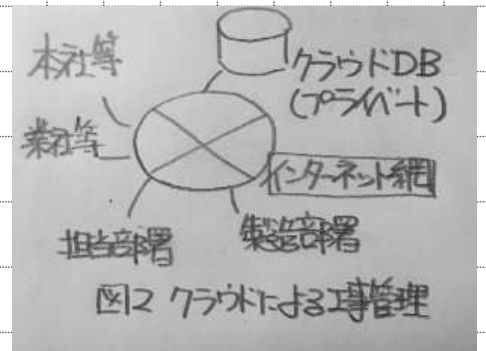 本社等
クラウドDB
(プライベート)
業社等
インターネット網
担当部署
製造部署
図2 クラウドによる工事管理